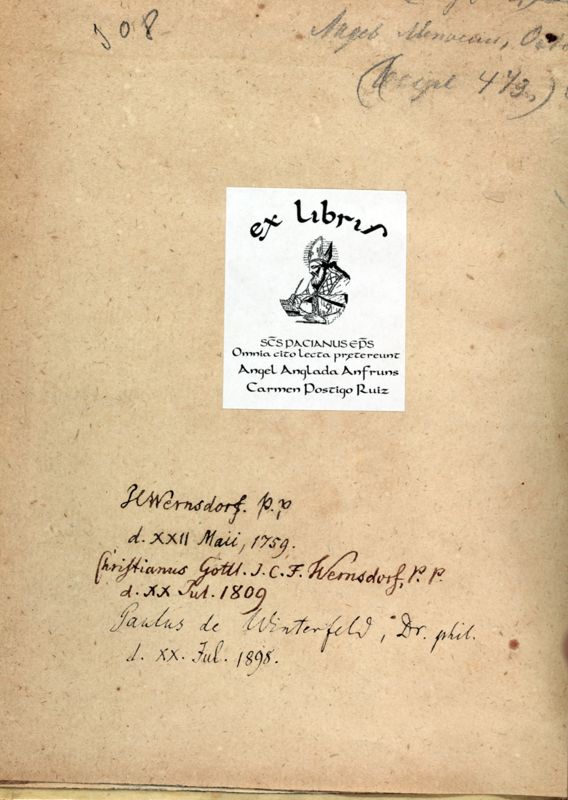 308
Angel
(473)
ex libris
SC̅S PACIANUS EP̅S
Omnia cito lecta pretereunt
Angel Anglada Anfruns
Carmen Postigo Ruiz
Wernsdorf. P. p
d. XXII Maii, 1759.
Christianus Gottl. I. C. F. Wernsdorf, P. P.
d. XX Jul. 1809
Paulus de Winterfeld, Dr. phil.
d. XX. Jul. 1898.